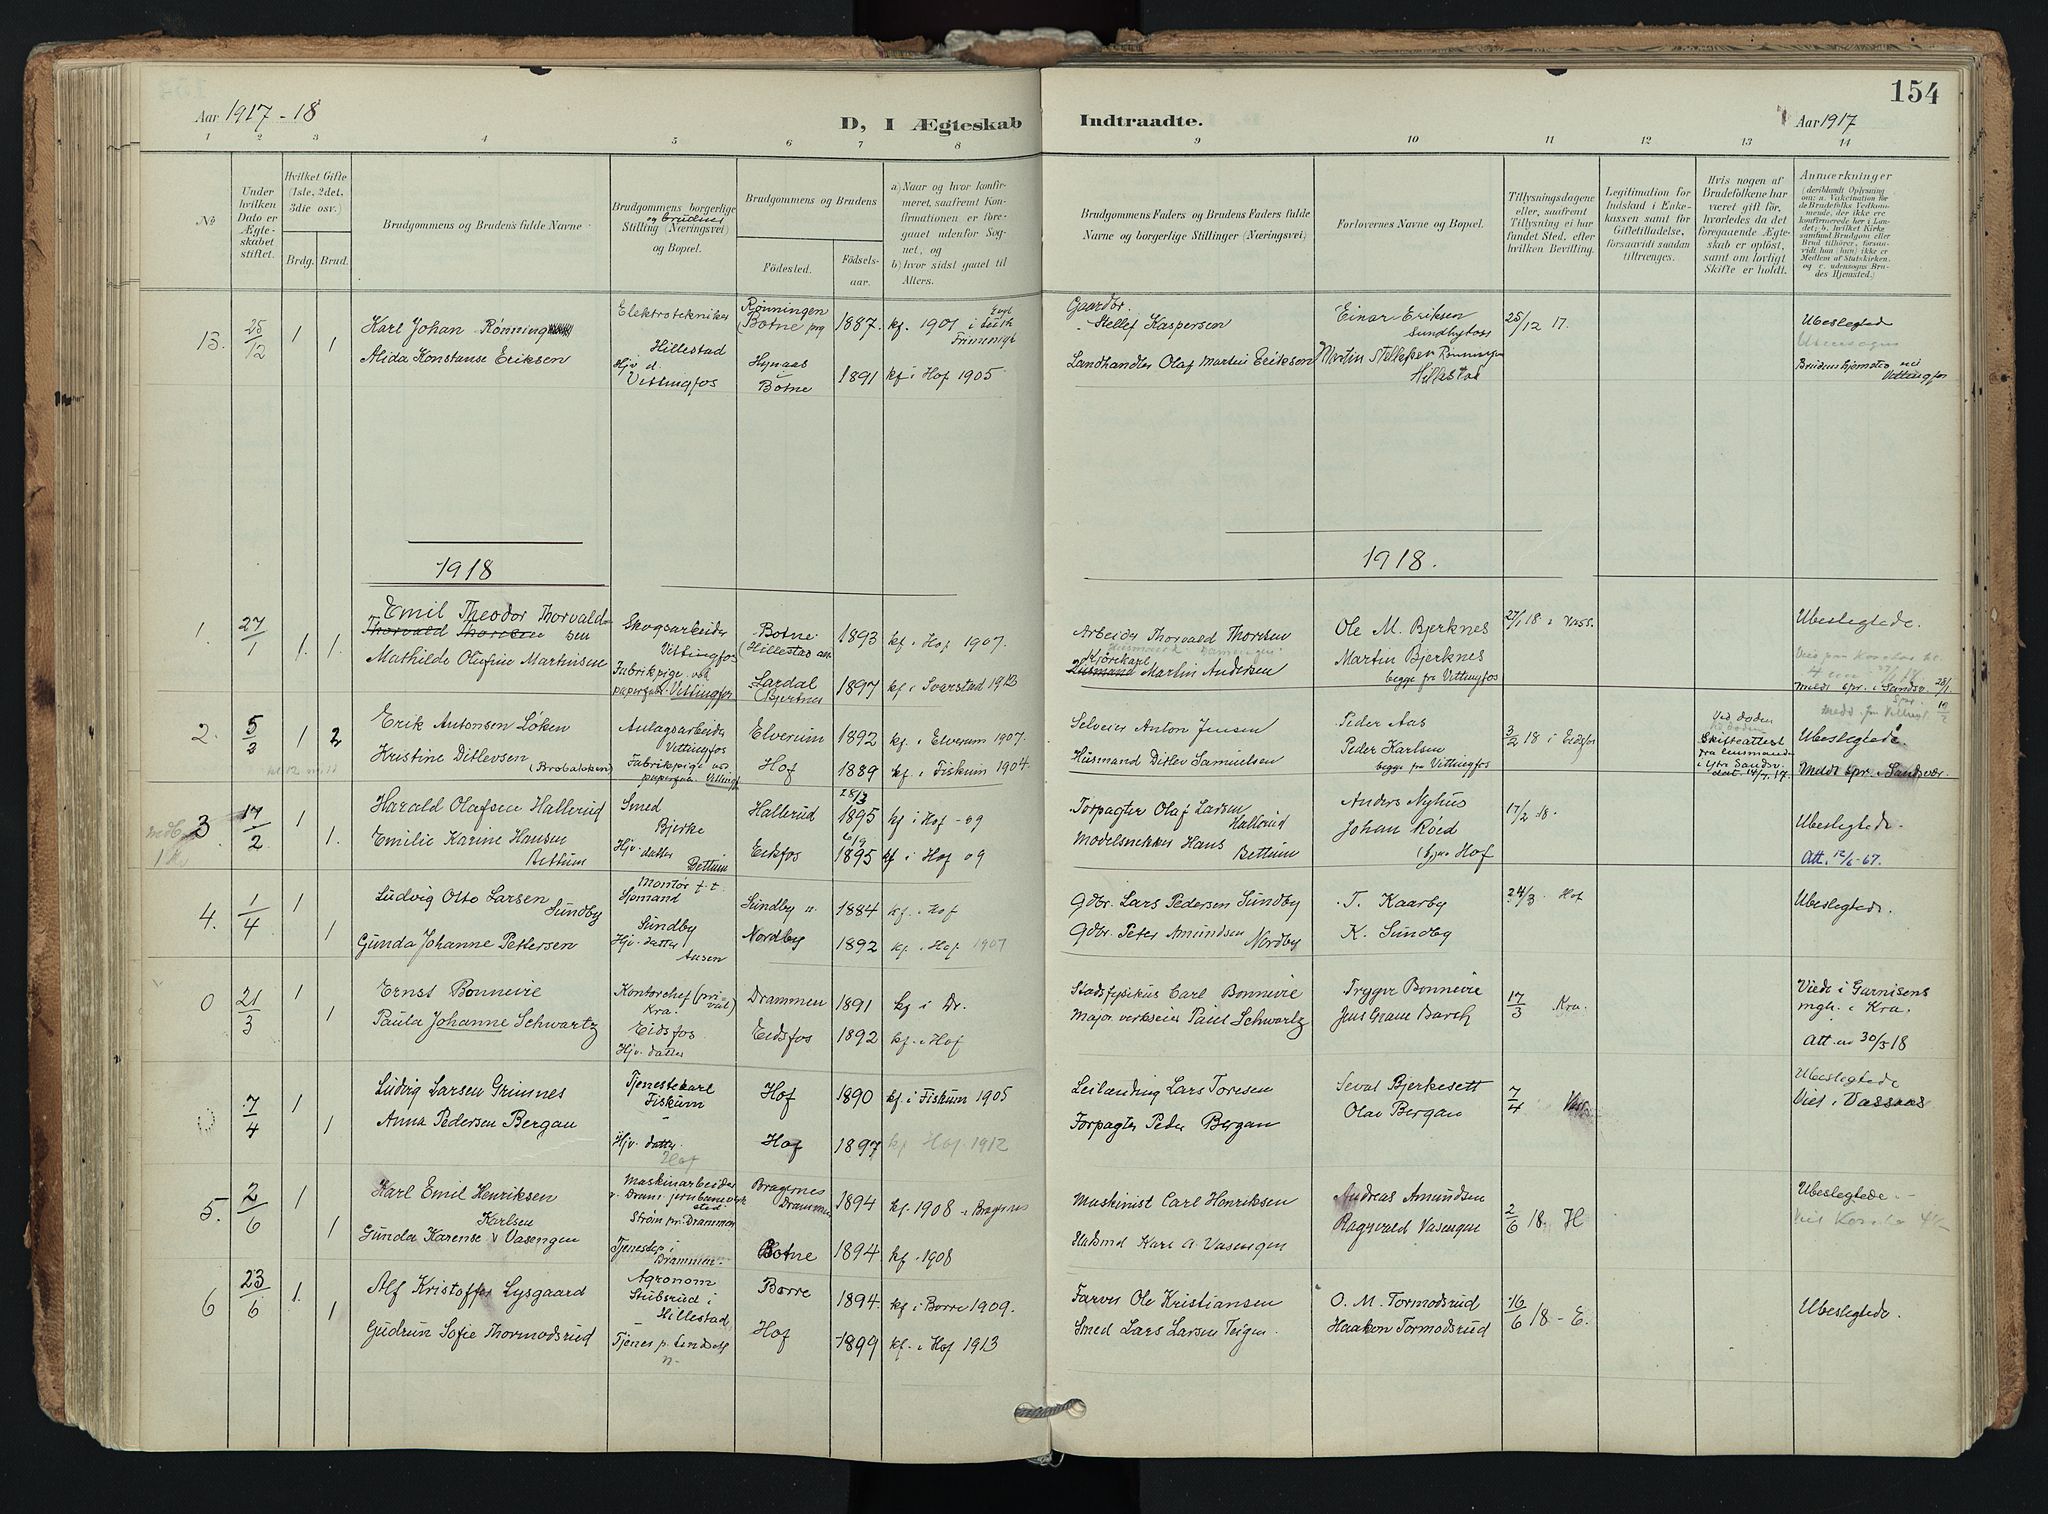 154
Aar 1917-18
D, I Ægteskab Indtraadte.
Aar 1917
1 2 3 4 5 6 7 8 9 10 11 12 13 14
No
Under hvilken Dato er Ægteskabet stiftet.
Hvilket Gifte (1ste, 2det, 3die osv.)
Brdg. Brud.
Brudgommens og Brudens fulde Navne
Brudgommens borgerlige og brudens Stilling (Næringsvei) og Bopæl.
Brudgommens og Brudens
Fødested. Fødselsaar.
a) Naar og hvor konfirmeret, saafremt Konfirmationen er foregaaet udenfor Sognet, og
b) hvor sidst gaaet til Alters.
Brudgommens Faders og Brudens Faders fulde Navne og borgerlige Stillinger (Næringsvei)
Forlovernes Navne og Bopæl.
Tillysningsdagene eller, saafremt Tillysning ei har fundet Sted, efter hvilken Bevilling.
Legitimation for Indskud i Enkekassen samt for Giftetilladelse, forsaavidt saadan tiltrænges.
Hvis nogen af Brudefolkene har været gift før, hvorledes da det foregaaende Ægteskab er opløst, samt om lovligt Skifte er holdt.
Anmærkninger (deriblandt Oplysning om: a. Vakcination for de Brudefolks Vedkommende, der ikke ere konfirmerede her i Landet; b. hvilket Kirkesamfund Brudgom eller Brud tilhører, forsaavidt han (hun) ikke er Medlem af Statskirken. og c. udensogns Brudes Hjemsted.)
13. 25/12 1 1
Karl Johan Rønning
Elektrotekniker Hillestad
Rønningen Botne 1887. kf. 1901
Gaardbr. Stellef Kaspersen
Einar Eriksen Sundbyfoss
25/12 17.
Ubeslegtede
Alida Konstanse Eriksen
Hjv d. Vittingfos
Hynaas Botne 1891 kf i Hof 1905
Landhandler Olaf Martin Erikson
Martin Stellefsen Rønningen Hillestad
Brudens hjemsted ved Vittingfos
1918
1918.
1. 27/1 1. 1.
Emil Theodor Thorvaldsen
Skogsarbeider Vittingfos
Botne (Hillestad 1893 kf. i Hof 1907.
Arbeider Thorvald Thoresen
Ole M. Bjerknes
27/1 18 i Vass.
Ubeslegtede.
Mathilde Olufine Martinsen
Fabrikpige ved papirfabr. Vittingfos
Lardal (Bjertnes 1897 kf i Svarstad 1913
Kjørekarl Husmand Martin Andersen
Martin Bjerknes begge fra Vittingfos
Medt spr. i Sandsv. 28/1
2. 5/3 1 2
Erik Antonsen Løken
Anlægsarbeider Vittingfos
Elverum 1892 kf. i Elverum 1907.
Selveier Anton Jensen
Peder Aas
3/2 18 i Eidsfos
Ved døden
Skifteattest fra lensmanden i Ytr Sandsv. dat. 14/7. 17.
Ubeslegtede.
Kristine Ditlevsen (Brobakken)
Fabrikpige ved papirfabr. Vittingf
Hof 1889 kf. i Fiskum 1904.
Husmand Ditlev Samuelsen
Peder Karlsen begge fra Vittingfos
Medt spr. i Sandsvær.
3. 17/2 1 1.
Harald Olafsen Hallerud
Smed Bjerke
Hallerud 28/3 1895 kf i Hof -09
Forpagter Olaf Larsen Hallerud
Anders Nyhus
17/2 18.
Ubeslegtede.
Emilie Karine Hansen Bettum
Hjv. datter Bettum
Eidsfos 6/9 1895 kf i Hof 09
Modelsnekker Hans Bettum
Johan Røed Hof
Att. 12/6-67.
4. 1/4 1 1
Ludvig Otto Larsen Sundby
Montør f. t. Sjømand Sundby
Sundby n. 1884 kf. i Hof
Gdbr. Lars Pedersen Sundby
T. Kaarby
24/3. Hof
Ubeslegtede.
Gunda Johanne Pettersen
Hjv. datter Aasen
Nordby 1892 kf. i Hof 1907
Gdbr. Peter Amundsen Nordby
K. Sundby
0 21/3 1 1
Ernst Bonnevie
Kontorchef (privat) Kra.
Drammen 1891 kf i Dr.
Stadsfysikus Carl Bonnevie
Trygve Bonnevie
17/3 Kra.
Viede i Garnisens mgh. i Kra.
Paula Johanne Schwartz
Eidsfos Hjv. datter
Eidsfos 1892 kf. i Hof
Major verkseier Paul Schwartz
Jens Gram Barch
Att. ud 30/3 18
0 7/4 1 1
Ludvig Larsen Grimnes
Tjenestekarl Fiskum
Hof 1890 kf. i Fiskum 1905
Leilending Lars Toresen
Seval Bjerkesett
7/4 Vass.
Ubeslegtede
Viet i Vassaas
Anna Pedersen Bergan
Hjv. datter. Hof
Hof 1897 kf Hof. 1912
Forpagter Peder Bergan
Olav Bergan
5. 2/6 1 1
Karl Emil Henriksen Karlsen
Maskinarbeider v. Dram. jernbaneverksted Strøm pr. Drammen
Bragernes Drammen 1894 kf. 1908 i Bragernes
Maskinist Carl Henriksen
Andreas Amundsen
2/6 18. H
Ubeslegtede.
Gunda Karense v Vasengen
Tjenestep i Drammen
Botne 1894 kf. 1908
Husmd Karl A. Vasengen
Ragvald Vasengen
6 23/6 1. 1
Alf Kristoffer Lysgaard
Agronom Stubsrud i Hillestad
Borre 1894. kf i Borre 1909.
Farver Ole Kristiansen
O. M. Tormodsrud
16/6 18 - E.
Ubeslegtede.
Gudrun Sofie Thormodsrud
Hof 1899 kf. i Hof 1913
Smed Lars Larsen Teigen
Haakon Tormodsrud